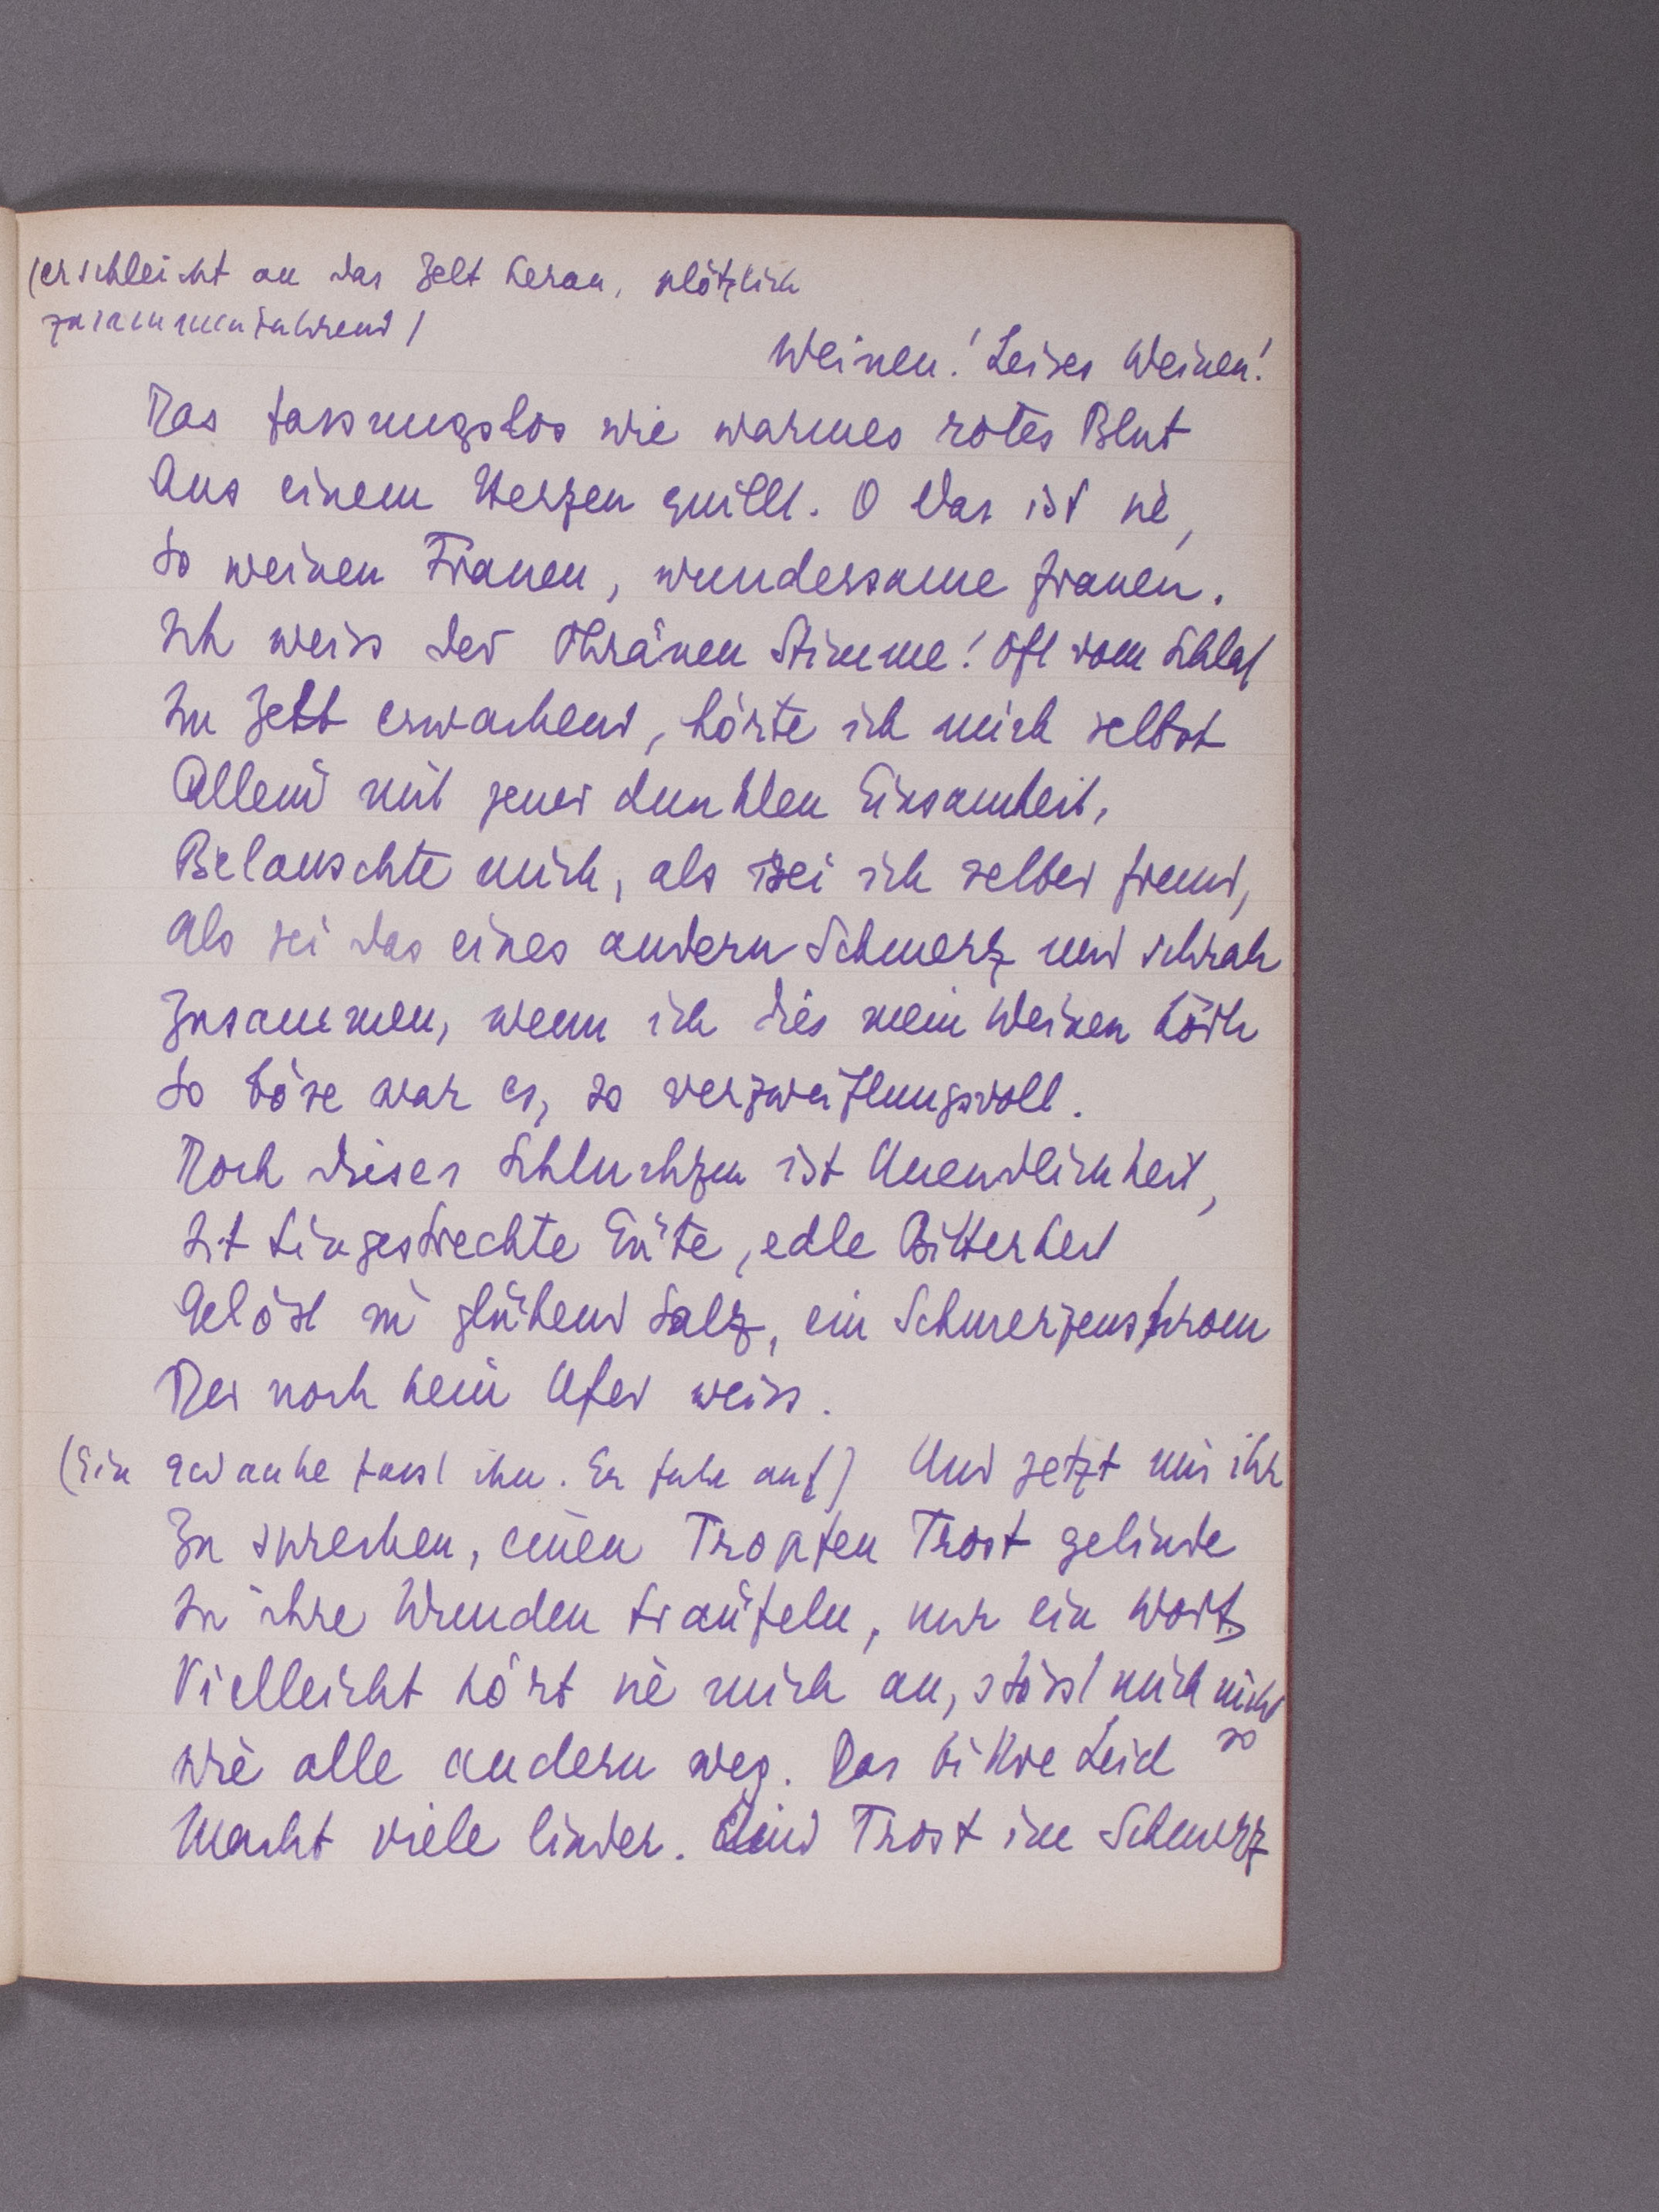 (er schleicht an das Zelt heran, plötzlich
zusammenfahrend)
Weinen! Leises Weinen!
Das fassungslos wie warmes rotes Blut
Aus einem Herzen quillt. O das ist sie,
So weinen Frauen, wundersame Frauen.
Ich weiss der Thränen Stimme! Oft vom Schlaf
Im Zelt erwachend, hörte ich mich selbst
Allein mit jener dunklen Einsamheit,
Belauschte mich, als sei ich selber fremd,
Als sei das eines andern Schmerz und schrak
Zusammen, wenn ich dies mein Weinen hörte
So böse war es, so verzweiflungsvoll.
Doch dieses Schluchzen ist Unendlichkeit,
Ist hingestreckte Güte, edle Bitterkeit
Gelöst in glühend Salz, ein Schmerzensstrom
Der noch kein Ufer weiss.
(Ein Gedanke fasst ihn. Er fährt auf) Und jetzt mit ihr
Zu sprechen, einen Tropfen Trost gelinde
In ihre Wunden träufeln, nur ein Wort,
Vielleicht hört sie mich an, stösst mich nicht
so
Wie alle andern weg. Das bittre Leid
Macht viele linder. Und Trost im Schmerz